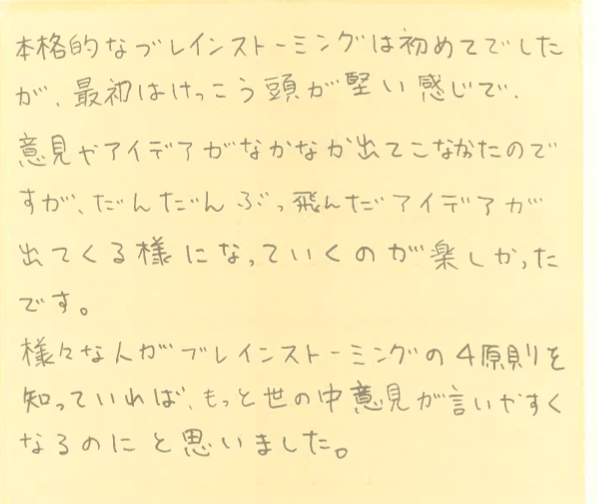 本格的なブレインストーミングは初めてでした
が、最初はけっこう頭が堅い感じで、
意見やアイデアがなかなか出てこなかたので
すが、だんだんぶっ飛んだアイデアが
出てくる様になっていくのが楽しかった
です。
様々な人がブレインストーミングの4原則を
知っていれば、もっと世の中意見が言いやすく
なるのにと思いました。